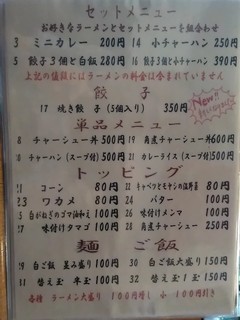 セットメニュー
お好きなラーメンとセットメニューを組合わせ
3 ミニカレー 200円 14 小チャーハン 250円
5 餃子3個と白飯 280円 16 餃子3個と小チャーハン 390円
上記の値段にはラーメンの料金は含まれていません
餃 子
17 焼き餃子 (5個入り) 350円
単品メニュー
8 チャーシュー丼 500円 19 角煮チャーシュー丼 600円
チャーハン(スープ付) 500円 カレーライス(スープ付) 500円
トッピング
コーン 80円 キャベツとモヤシの塩 80円
ワカメ 80円 24 バター 100円
100円 26 味付けメンマ 100円
味付けタマゴ 100円 28 角煮チャーシュー 250円
麺 ご飯
白ご飯 並み盛り 100円 30 白ご飯大盛り 150円
替え玉 半玉 100円 32 替え玉 1玉 150円
各種 ラーメン大盛り 100円増し 小 100円引き